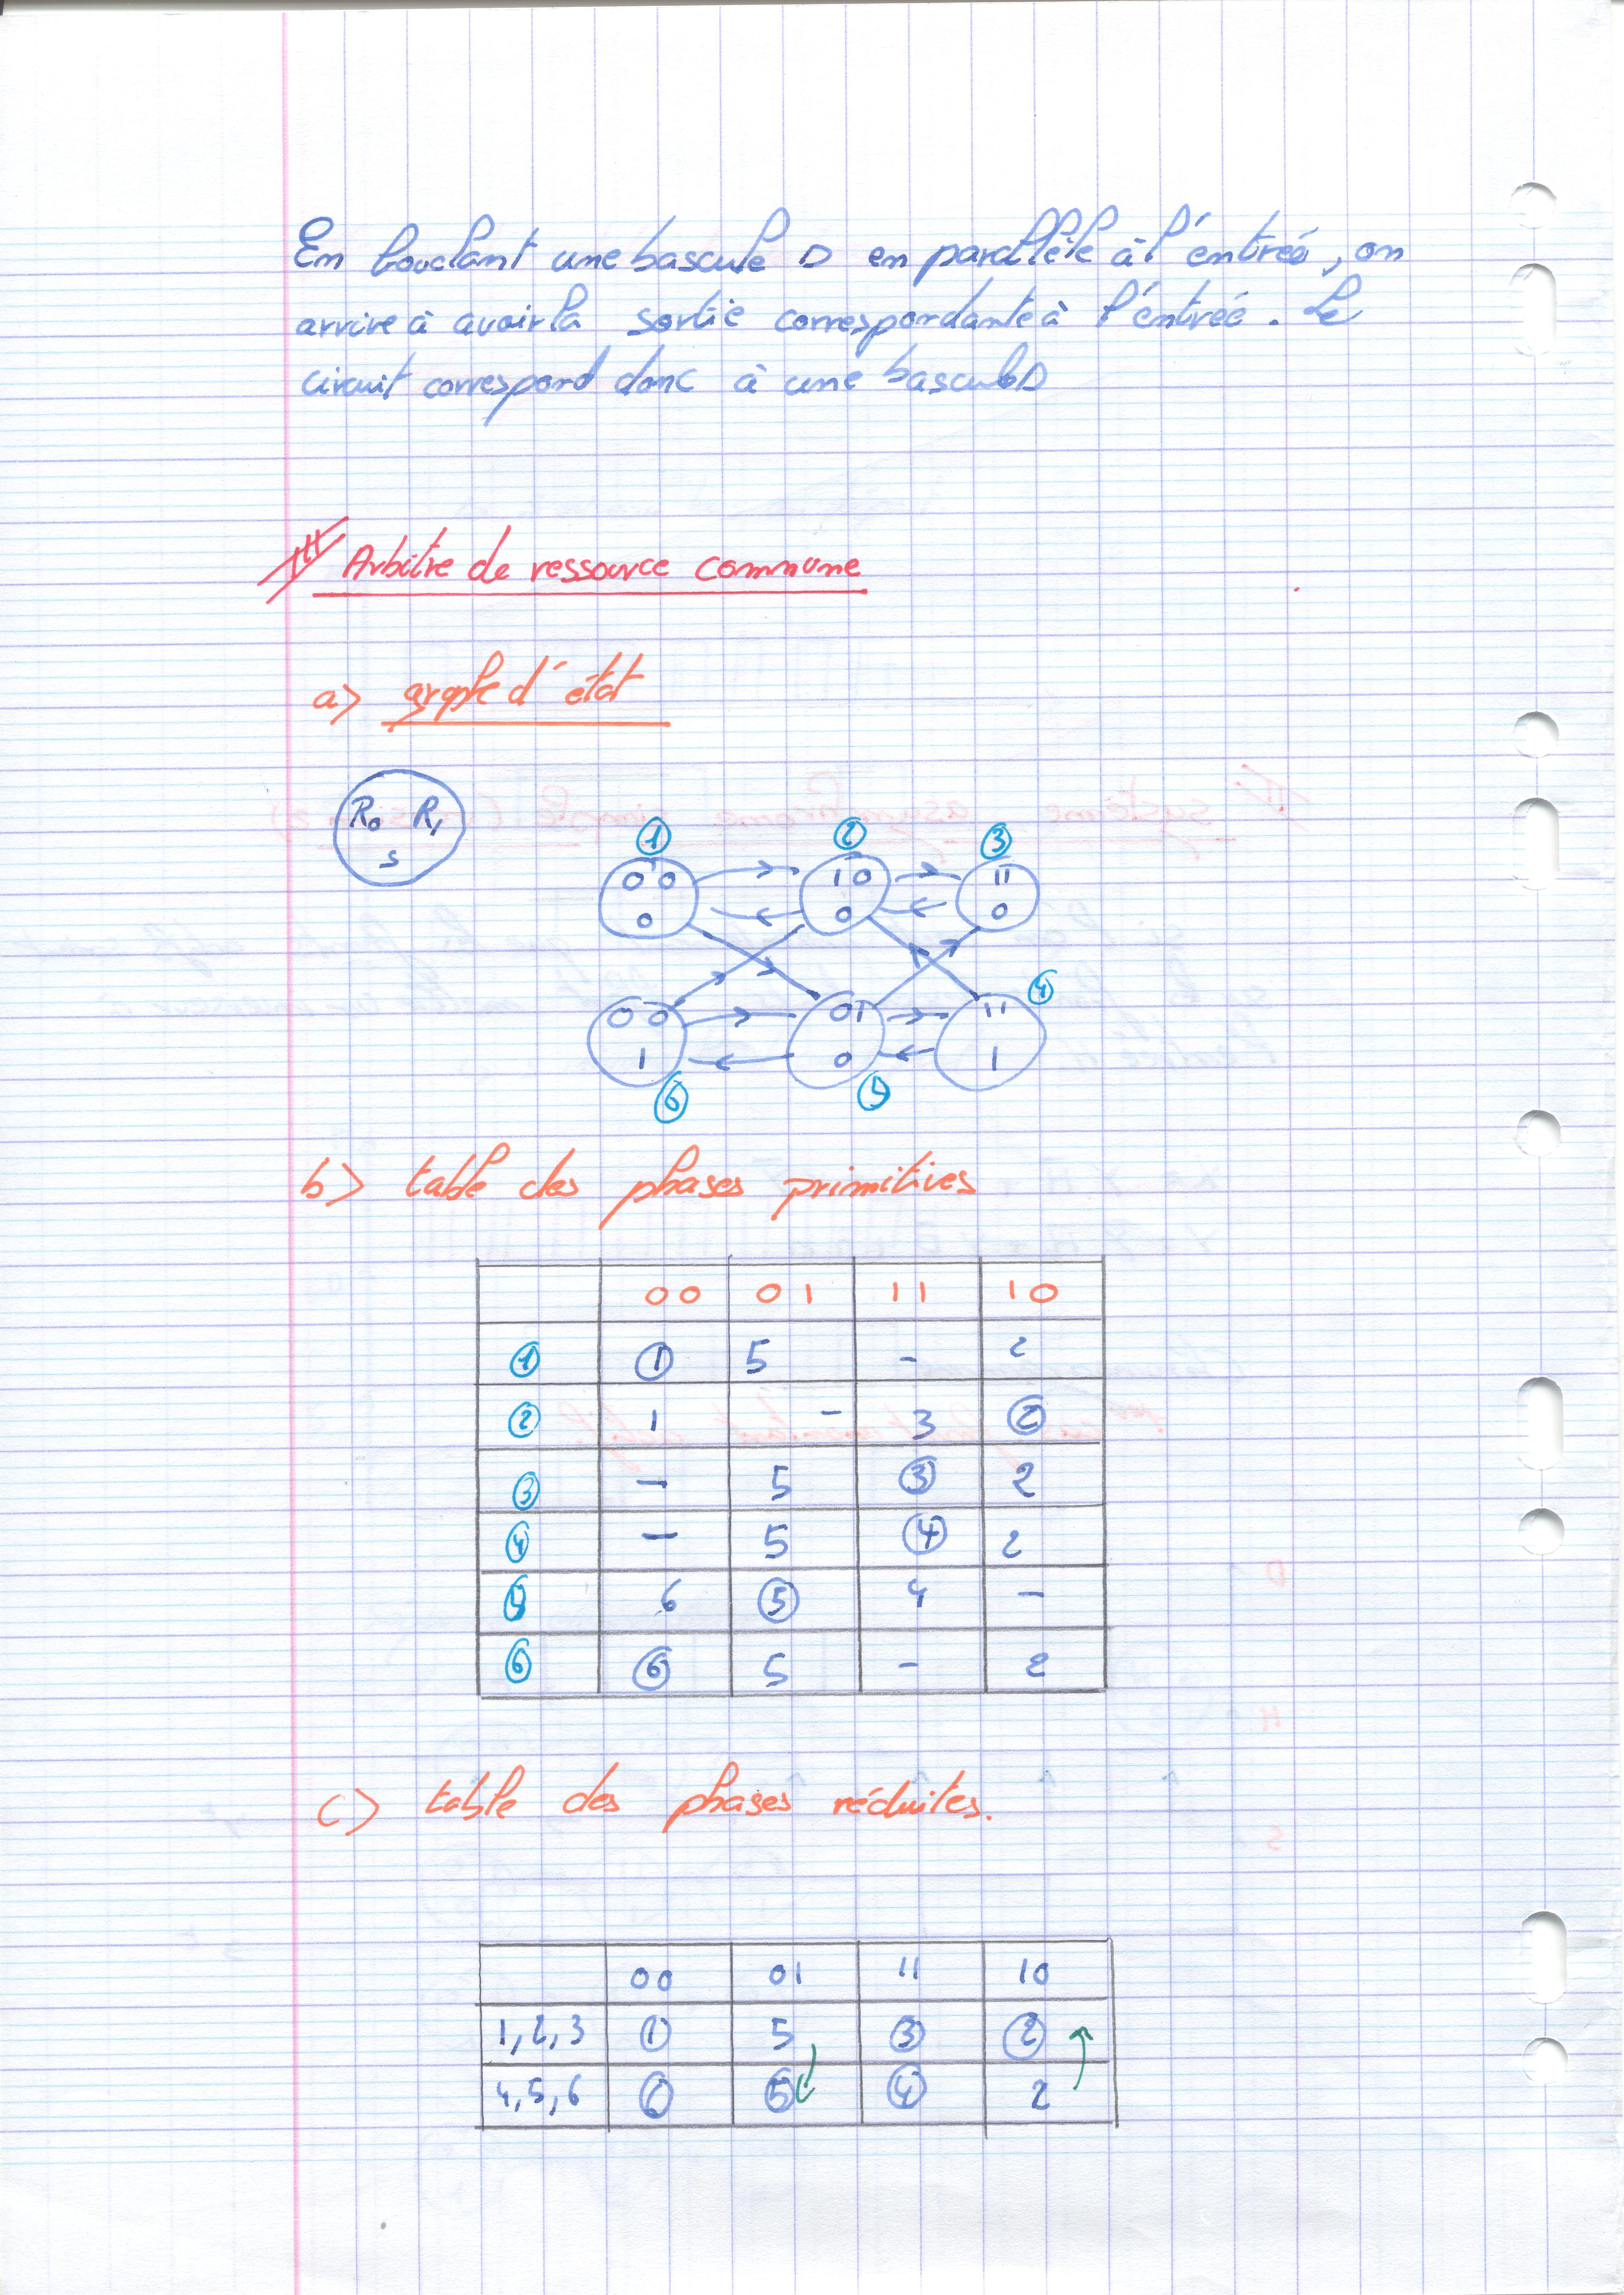 En bouclant une bascule D en parallèle à l'entrée, on
arrive à avoir la sortie correspondante à l'entrée. Le
circuit correspond donc à une bascule D
Arbitre de ressource commune
a) graphe d'état
R0 R1
S
1 2 3
00 10 11
0 0 0
4
00 01 11
1 0 1
6 5
b) table des phases primitives
00 01 11 10
1 1 5 - 2
2 1 - 3 2
3 - 5 3 2
4 - 5 4 2
5 6 5 4 -
6 6 5 - 2
c) table des phases réduites.
00 01 11 10
1,2,3 1 5 3 2
4,5,6 6 5 4 2